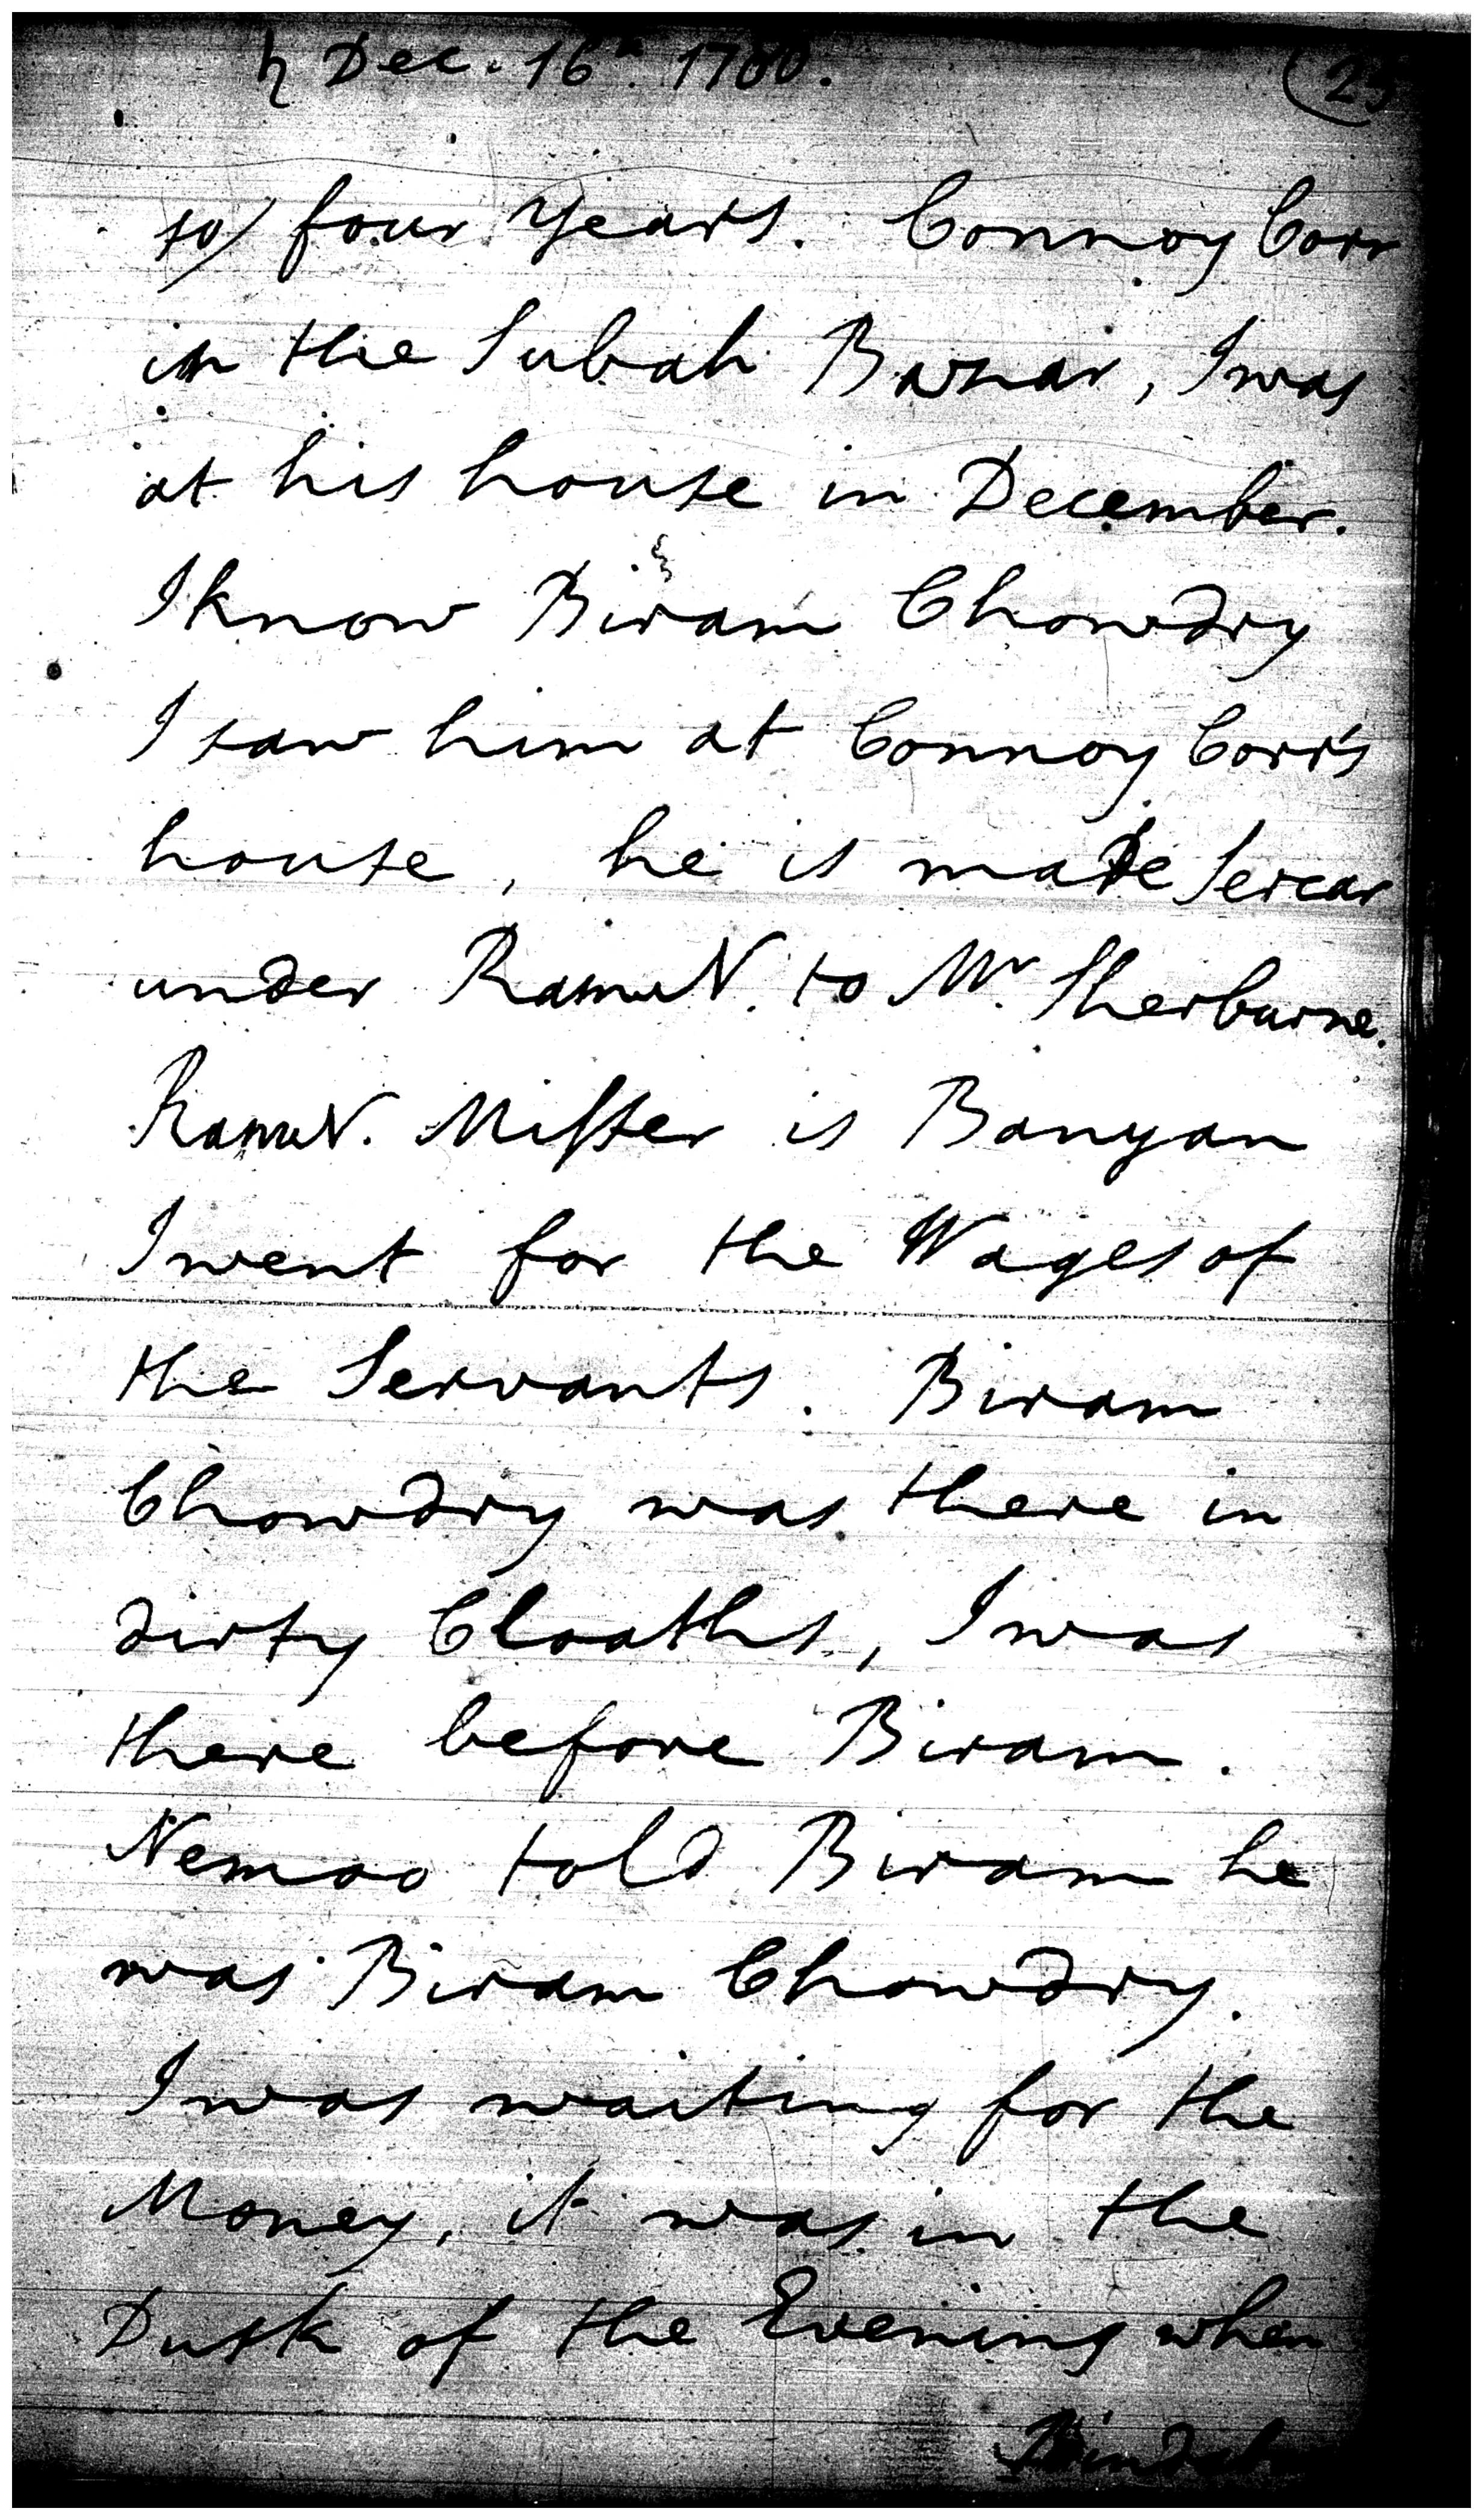 ♄ Dec. 16th. 1780.
to/ four Years. Connoy Corr
in the Subah Bazar, I was
at his house in December.
I know Biram Chowdry
I saw him at Connoy Corr's
house, he is made Sercar
under RamuN. to Mr. Sherburne.
RamuN. Mister is Banyan
I went for the Wages of
the Servants. Biram
Chowdry was there in
dirty Cloaths, I was
there before Biram.
Nemoo told Biram he
was Biram Chowdry.
I was waiting for the
Money, it was in the
Dusk of the Evening when